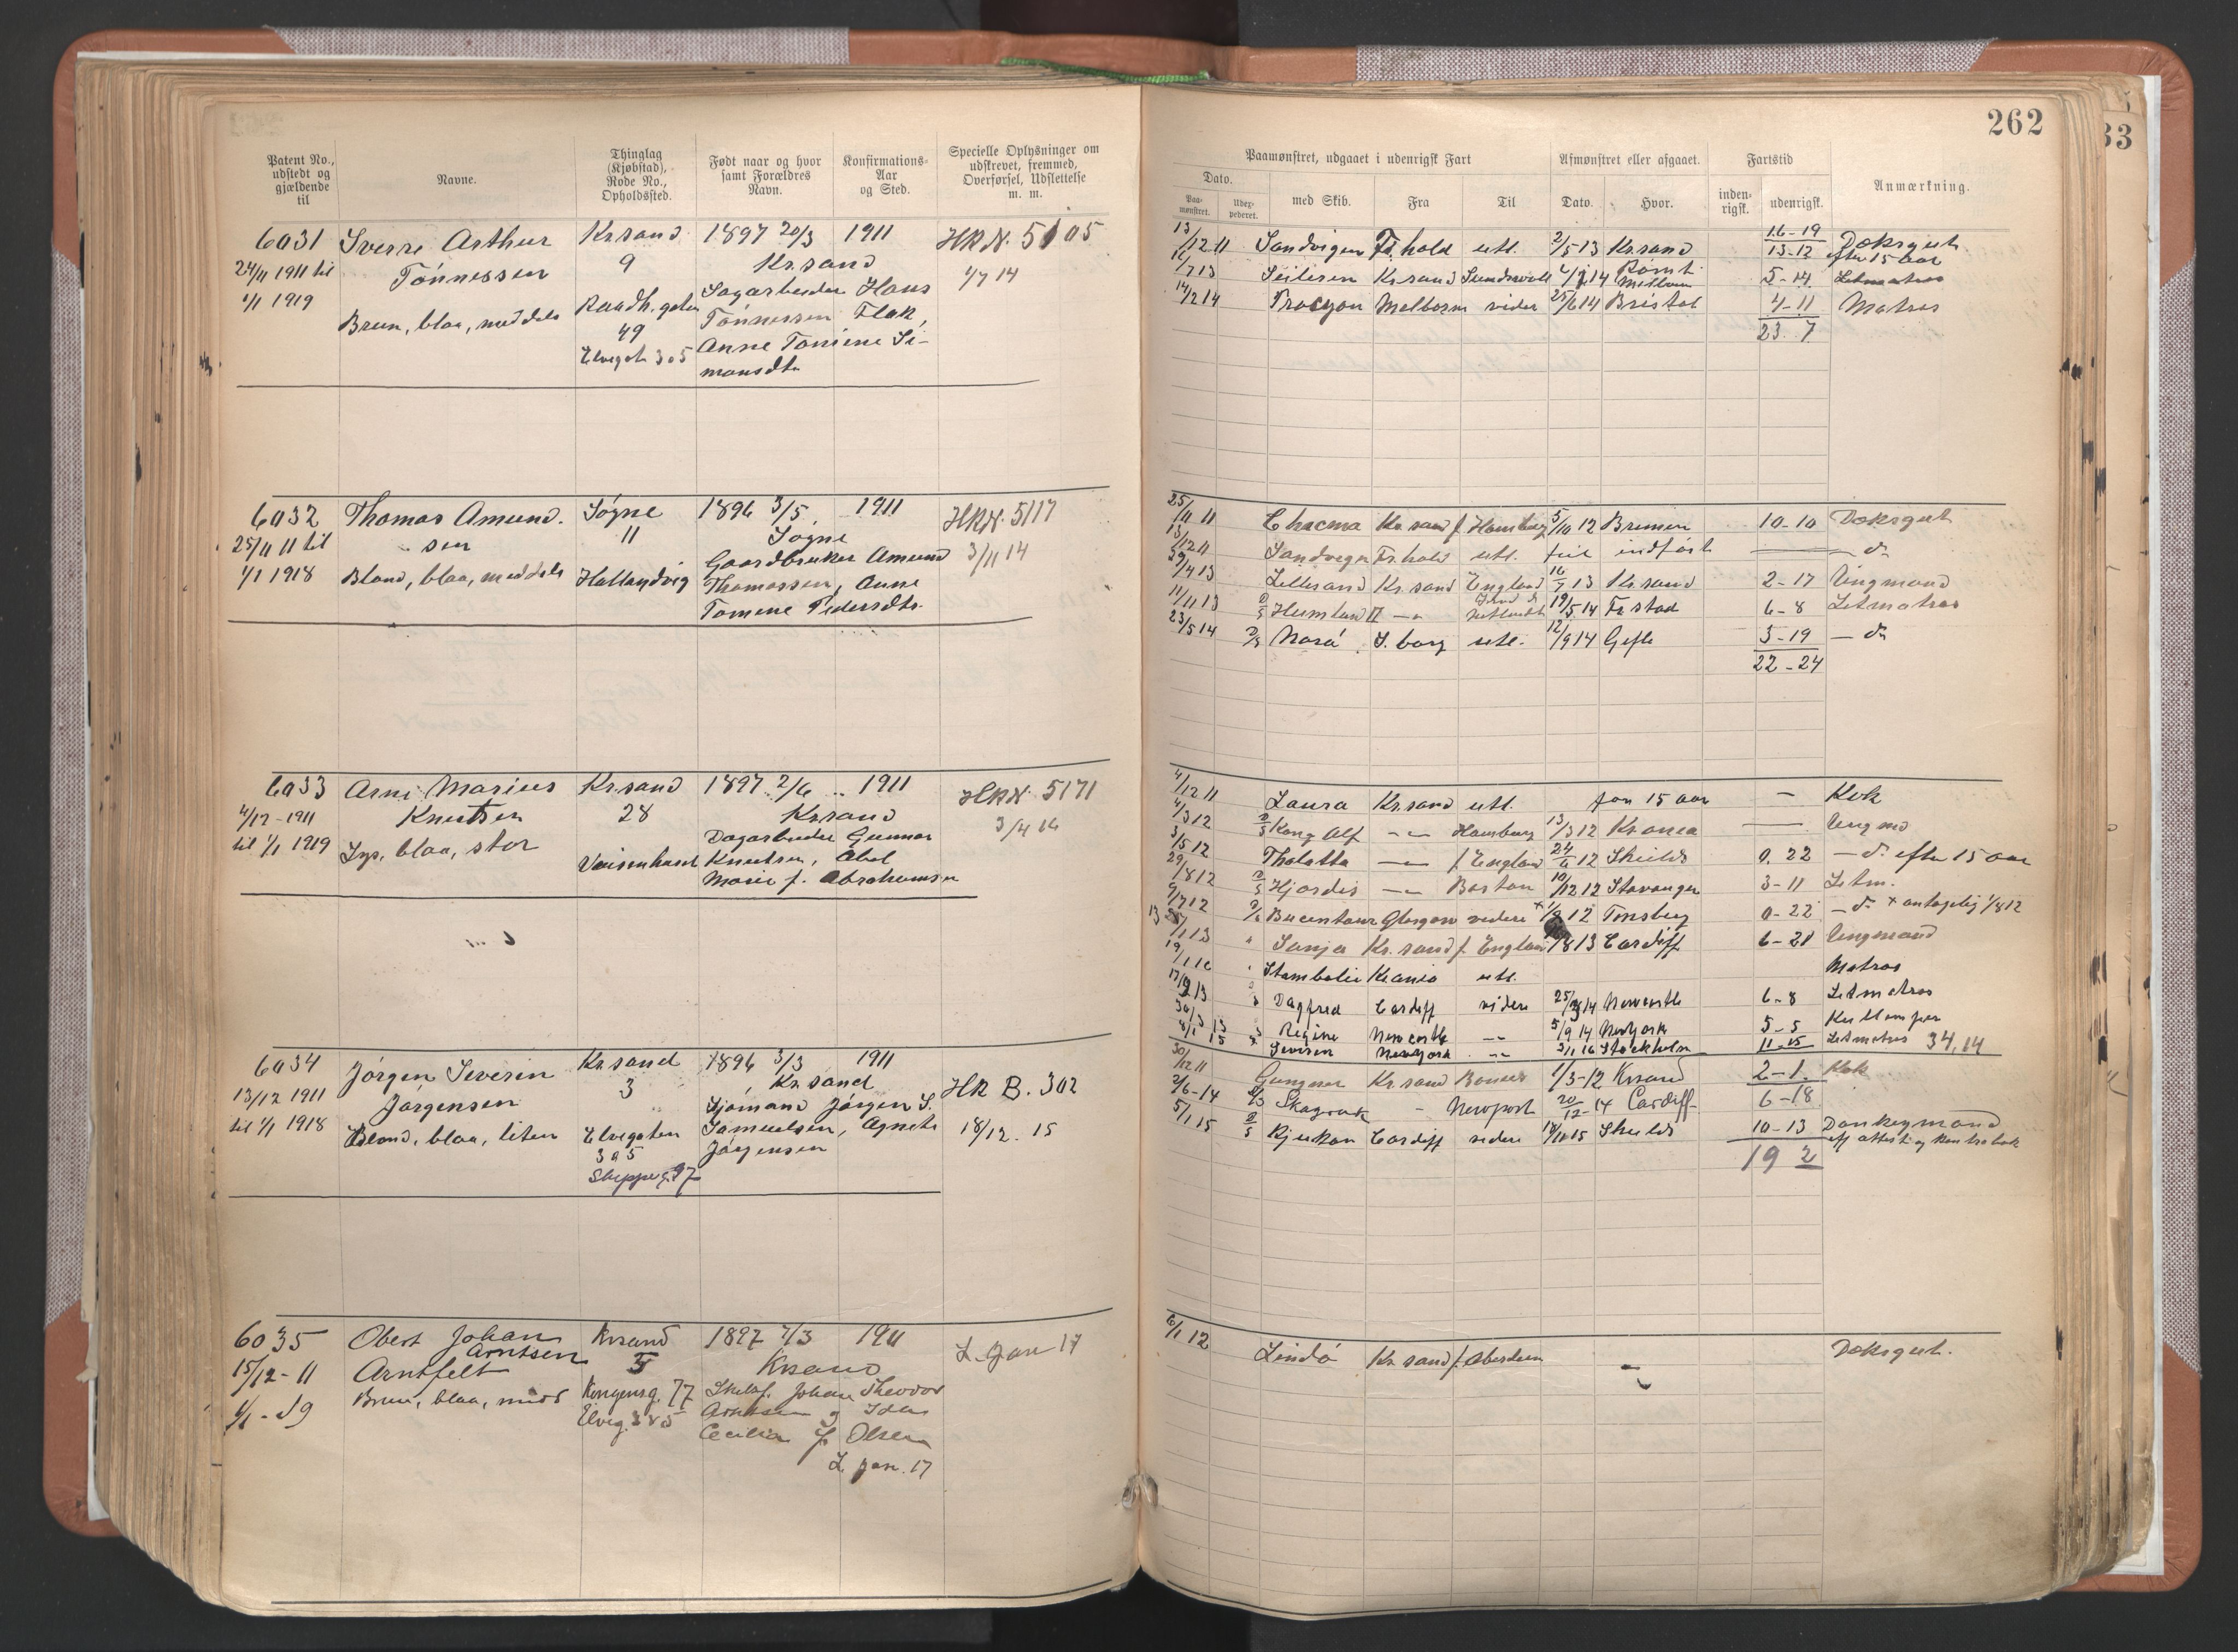 262
33
Patent No.,
udstedt og
gjældende
til
Navne.
Thinglag
(Kjøbstad),
Rode No.,
Opholdssted.
Født naar og hvor
samt Forældres
Navn.
Konfirmations-
Aar
og Sted.
Specielle Oplysninger om
udskrevet, fremmed,
Overførsel, Udslettelse
m. m.
6031
24/11 1911 til
1/1 1919
Sverre Arthur
Tönnessen
Brun, blaa, middels
Kr.sand
9
Raadh.gaten
49
Elvegt 305
1897 20/3 1911
Kr.sand
Sagarbeider Hans
Tönnessen Flak,
Anne Tomine Si-
monsdtr
HRN. 5105
1/7 14
6032
25/11 11 til
1/1 1918
Thomas Amund.
sen
Blond, blaa, middels
Søgne
11
Høllandvig
1896 3/5 1911
Søgne
Gaardbruker Amund
Thomassen, Anne
Tomine Pedersdtr.
HRN. 5117
3/11 14
6033
4/12-1911
til 1/1 1919
Arne Marius
Knutsen
Lys, blaa, stor
Kr.sand
28
Vaisenhuset
1897 2/6 1911
Kr.sand
Dagarbeider Gunnar
Knutsen, Abel
Marie f. Abrahamsen
HRN. 5171
3/4 16
6034
13/12 1911
til 1/1 1918
Jørgen Severin
Jørgensen
Blond, blaa, liten
Kr.sand
3
Elvegaten
305
Skippergt. 97
1896 3/3 1911
Kr.sand
Sjømand Jørgen S.
Samuelsen, Agnete
Jørgensen
HR B. 302
18/12. 15
6035
15/12-11
1/1-19
Obert Johan
Arntsen
Arntfelt
Brun, blaa, midd
Krsand
5
Kongensg. 77
Elveg. 385
1897 7/3 1911
Krsand
Johan Theodor
Arntsen og Ida
Cecilia f. Olsen
L. Jan. 17
L. Jan 17
Paamønstret, udgaaet i udenrigsk Fart
Afmønstret eller afgaaet.
Fartstid
Anmærkning.
Dato.
Paa-
mønstret.
Udex-
pederet.
med Skib.
Fra
Til
Dato.
Hvor.
inden-
rigsk.
udenrigsk.
13/12 11 Sandvigen Fr.hald utl. 2/5 13 Kr.sand 16-19
13-12 Doksgut
efter 15 aar
16/7 13 Seileren Kr.sand Sundsvall 14 Rømt
5-14 Letmatros
14/2 14 Procyon Melborne videre 25/6 14 Bristol 4-11 Matros
23. 7
25/11 11 Chacma Kr.sand f. Hamburg 5/10 12 Bremen 10-10 Doksgut
13/12 11 Sandvigen Fr.hald utl. feil indført — do
29/4 13 Lillesand Kr.sand England 16/7 13 Kr.sand 2-17 Ungmand
11/11 13 Heimland II —"— 19/5 14 Fr.stad 6-8 Letmatros
23/5 14 Norå S.borg utl. 12/9 14 Gefle 3-19 — do
22-24
4/12 11 Laura Kr.sand utl. før 15 aar — Kok
4/3 12 Kong Alf —"— Hamburg 13/3 12 Kr.ania — Ungmd
3/5 12 Tholotta —"— f. England 24/6 12 Shields 0. 22 — do efter 15 aar
29/8 12 Hjørdis —"— Boston 10/12 12 Stavanger 3-11 Letm.
9/7 12 Bucentaur Glasgow videre × 1/8 12 Tønsberg 0-22 — do × antagelig 1/8 12
1 13 Sanja Kr.sand f. England 8 13 Cardiff 6-21 Ungmand
19/1 16 Stambolie Kr.ania utl. Matros
13 Dagfred Cardiff videre 25/3 14 Newcastle 6-8 Letmatros
Regine Newcastle —"— 5/9 14 NewYork 5-5 Kullemper
Severin NewYork —"— 3/1 16 Stockholm 11-15 Letmatros 34,14
30/12 11 Gungner Kr.sand 1/3-12 Krsand 2-1. Kok
2/6-14 Skagerak " Newport 20/12-14 Cardiff 6-18
5/1 15 Rjukan Cardiff videre 18/11 15 Shields 10-13 Donkeymand
eft attest og kontrabok
19 2
6/1 12 Lindö Kr.sand f. Aberdeen — Doksgut.